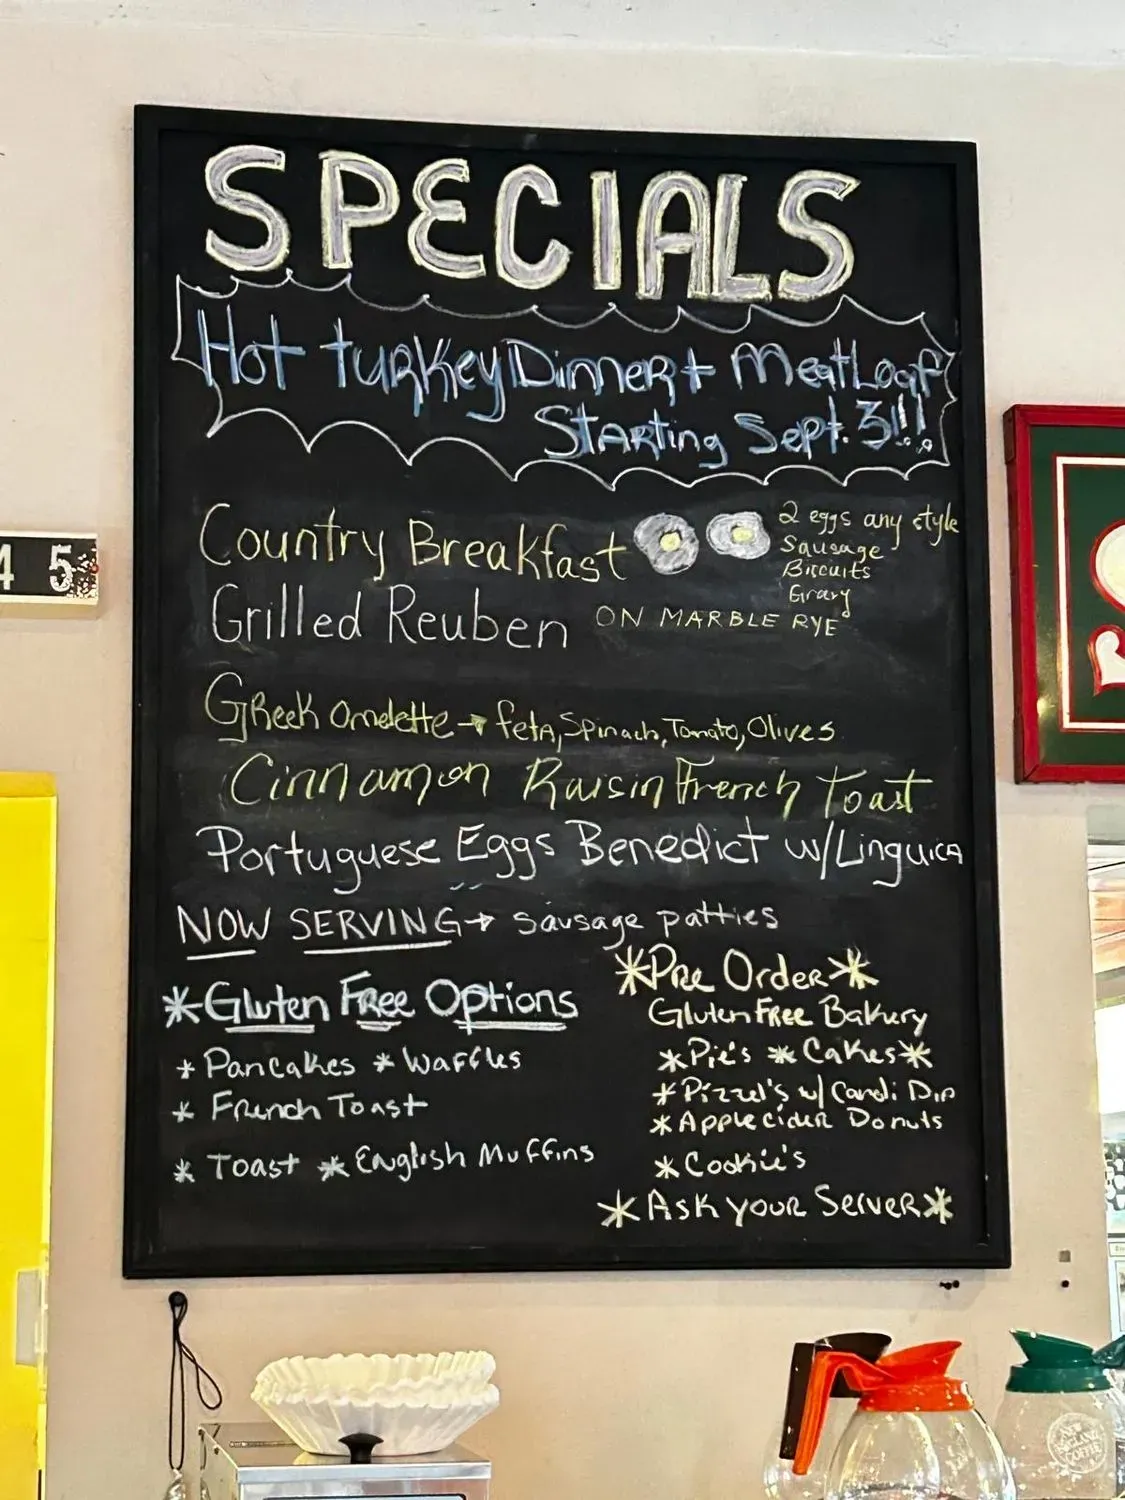 4 5
SPECIALS
Hot Turkey Dinner + Meatloaf
Starting Sept. 3!!!
Country Breakfast
2 eggs any style
Sausage
Biscuits
Gravy
Grilled Reuben ON MARBLE RYE
Greek Omelette → feta, Spinach, Tomato, Olives
Cinnamon Raisin French Toast
Portuguese Eggs Benedict w/Linguica
NOW SERVING → Sausage patties
*Gluten Free Options
* Pancakes * Waffles
* French Toast
* Toast * English Muffins
*Pre Order*
Gluten Free Bakery
*Pie's * Cakes*
*Pizzel's w/ Candi Dip
*Apple cider Donuts
*Cookie's
*Ask your Server*
NEW ENGLAND COFFEE